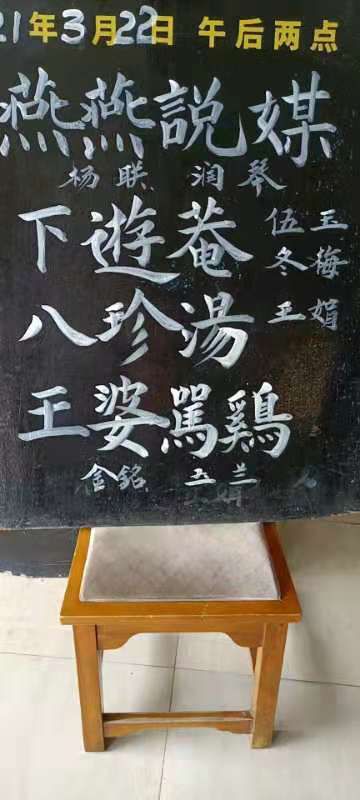 21年3月22日 午后两点
燕燕説媒
杨联 润琴
下遊菴 伍玉
冬梅
八珍湯 王娟
王婆罵鷄
金铭 玉兰